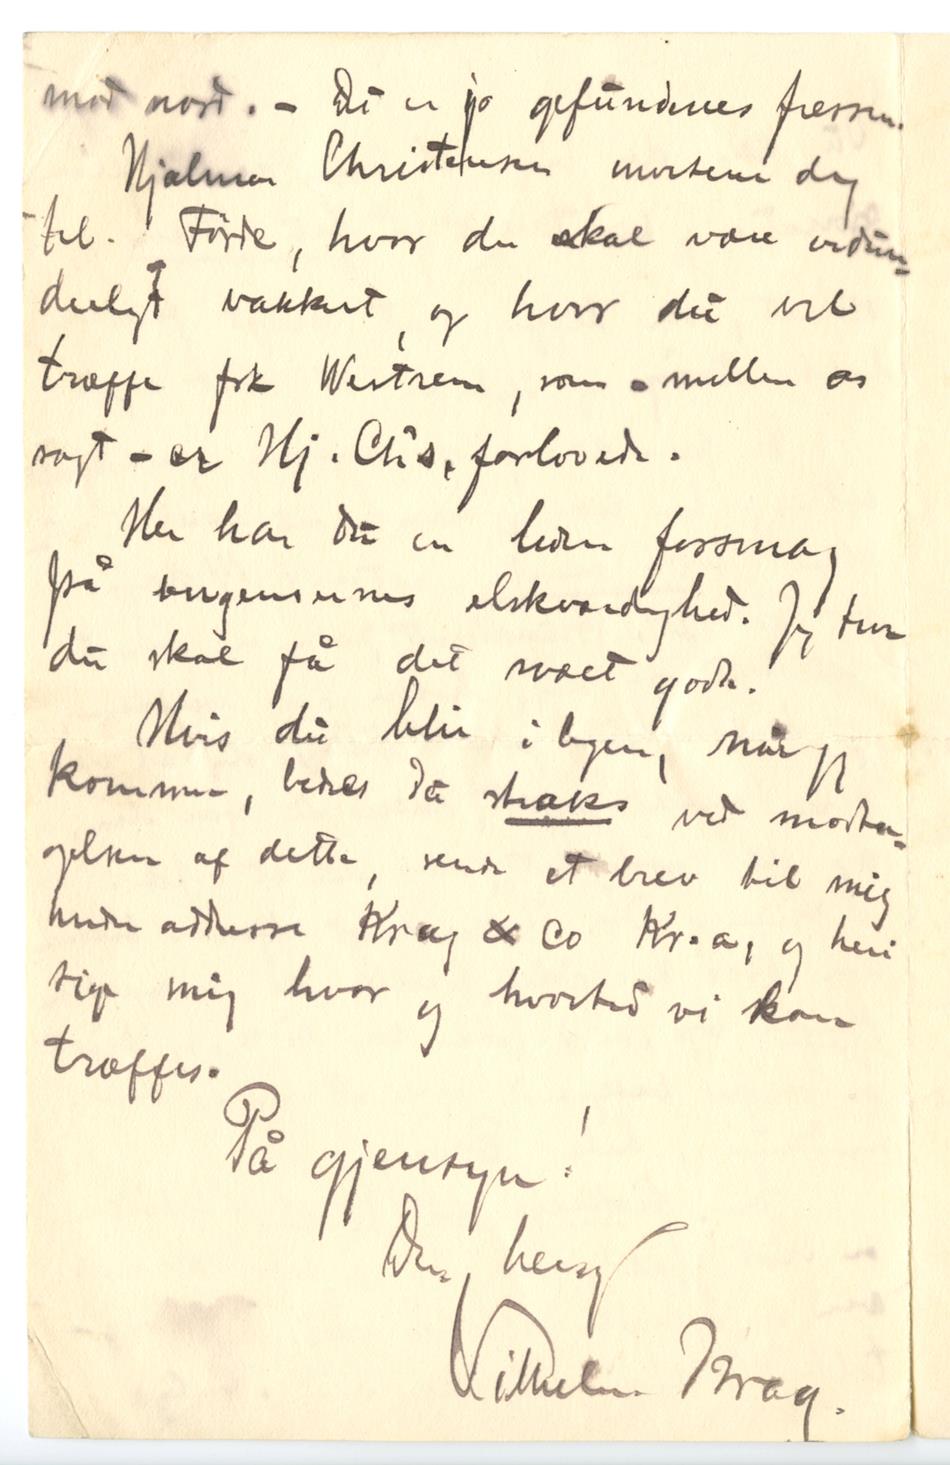 mod nord. – Det er jo gefundenes fressen.
Hjalmar Christensen inviterer dig
til Førde, hvor der skal være vidun-
derligt vakkert, og hvor du vil
træffe frk Westrem, som – mellem os
sagt – er Hj. Chs, forlovede.
Her har du en liden forsmag
på bergensernes elskværdighed. Jeg tror
du skal få det svært godt.
Hvis du blir i byen, når jeg
kommer, bedes du straks ved modta-
gelsen af dette, sende et brev til mig
under addresse Krag & Co Kr.a, og heri
sige mig hvor og hvorlud vi kan
træffes.
På gjensyn!
Din heng
Vilhelm Krag.